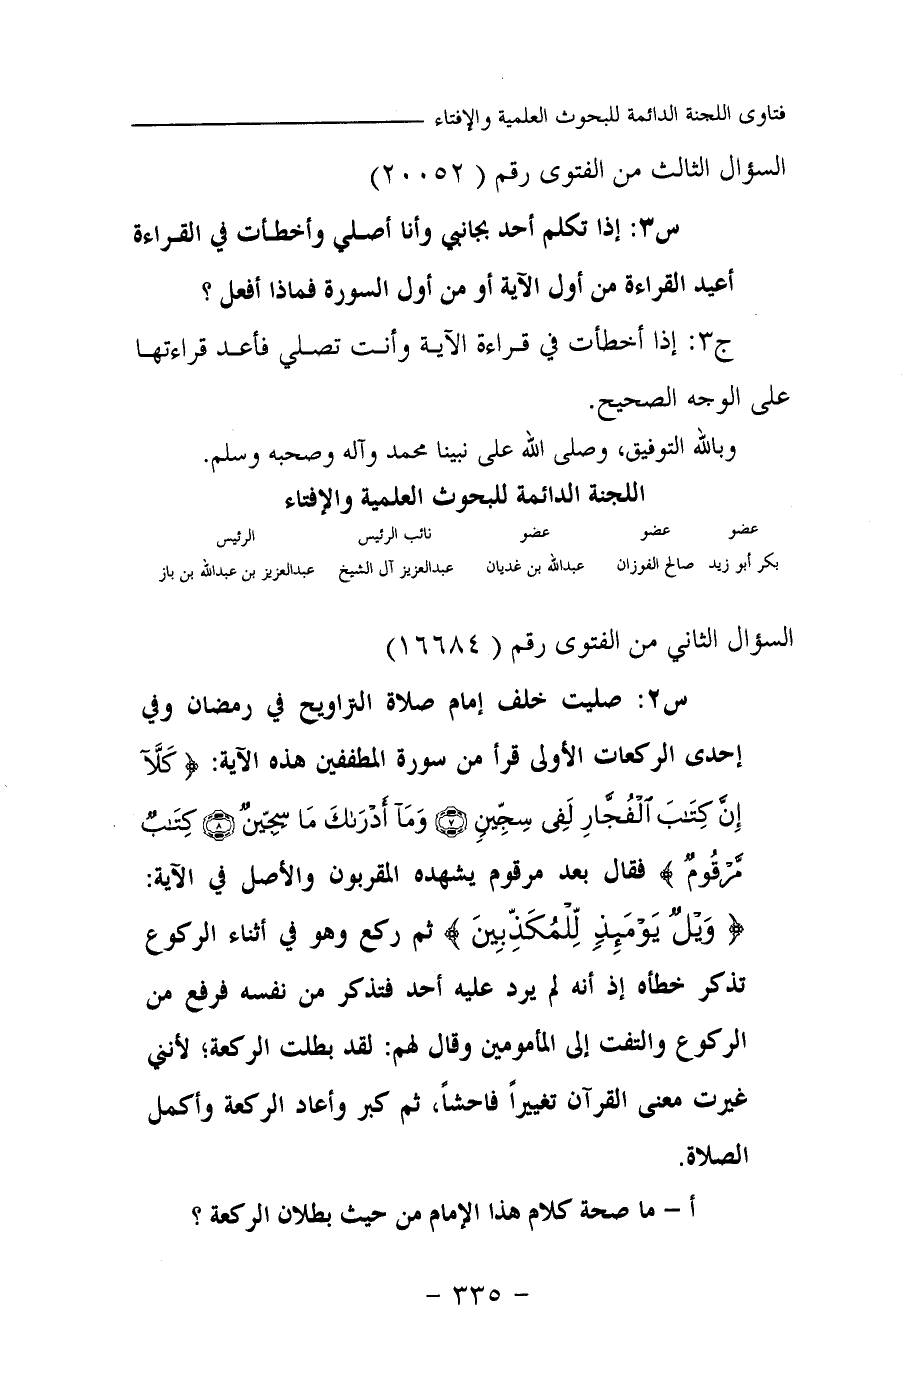 فتاوى اللجنة الدائمة للبحوث العلمية والإفتاء
السؤال الثالث من الفتوى رقم ( ٢٠٠٥٢)
س٣: إذا تكلم أحد بجانبي وأنا أصلي وأخطأت في القراءة
أعيد القراءة من أول الآية أو من أول السورة فماذا أفعل ؟
ج٣: إذا أخطأت في قراءة الآية وأنت تصلي فأعد قراءتها
على الوجه الصحيح.
وبالله التوفيق، وصلى الله على نبينا محمد وآله وصحبه وسلم.
اللجنة الدائمة للبحوث العلمية والإفتاء
عضو عضو عضو نائب الرئيس الرئيس
بكر أبو زيد صالح الفوزان عبدالله بن غديان عبدالعزيز آل الشيخ عبدالعزيز بن عبدالله بن باز
السؤال الثاني من الفتوى رقم ( ١٦٦٨٤)
س٢: صليت خلف إمام صلاة التراويح في رمضان وفي
إحدى الركعات الأولى قرأ من سورة المطففين هذه الآية: ﴿ كَلَّآ
إِنَّ كِتَٰبَ ٱلْفُجَّارِ لَفِى سِجِّينٍ ٧ وَمَآ أَدْرَىٰكَ مَا سِجِّينٌ ٨ كِتَٰبٌ
مَّرْقُومٌ ﴾ فقال بعد مرقوم يشهده المقربون والأصل في الآية:
﴿ وَيْلٌ يَوْمَئِذٍ لِّلْمُكَذِّبِينَ ﴾ ثم ركع وهو في أثناء الركوع
تذكر خطأه إذ أنه لم يرد عليه أحد فتذكر من نفسه فرفع من
الركوع والتفت إلى المأمومين وقال لهم: لقد بطلت الركعة؛ لأنني
غيرت معنى القرآن تغييراً فاحشاً، ثم كبر وأعاد الركعة وأكمل
الصلاة.
أ – ما صحة كلام هذا الإمام من حيث بطلان الركعة ؟
– ٣٣٥ –